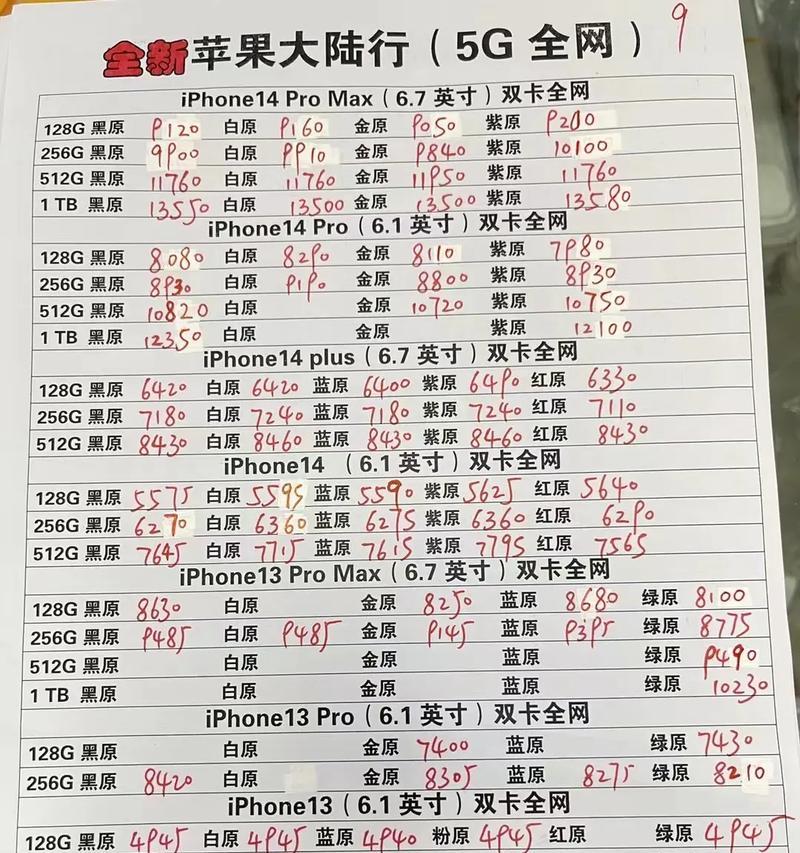 全新苹果大陆行（5G 全网） 9
iPhone14 Pro Max（6.7 英寸）双卡全网
128G 黑原 9120 白原 9160 金原 9050 紫原 9200
256G 黑原 9900 白原 9910 金原 9840 紫原 10100
512G 黑原 11760 白原 11760 金原 11950 紫原 11760
1 TB 黑原 13550 白原 13500 金原 13500 紫原 13580
iPhone14 Pro（6.1 英寸）双卡全网
128G 黑原 8080 白原 8290 金原 8110 紫原 7980
256G 黑原 8930 白原 9190 金原 8800 紫原 8930
512G 黑原 10820 白原 金原 10720 紫原 10750
1 TB 黑原 12350 白原 金原 紫原 12100
iPhone14 plus（6.7 英寸）双卡全网
128G 黑原 6420 白原 6420 蓝原 6400 紫原 6490 红原 6330
256G 黑原 7180 白原 7240 蓝原 7180 紫原 7240 红原 7110
512G 黑原 8430 白原 8460 蓝原 8430 紫原 8460 红原 8430
iPhone14 （6.1 英寸）双卡全网
128G 黑原 5575 白原 5595 蓝原 5590 紫原 5625 红原 5640
256G 黑原 6270 白原 6360 蓝原 6275 紫原 6360 红原 6290
512G 黑原 7645 白原 7715 蓝原 7615 紫原 7795 红原 7565
iPhone13 Pro Max（6.7 英寸）双卡全网
128G 黑原 8630 白原 金原 8250 蓝原 8680 绿原 8100
256G 黑原 9485 白原 9485 金原 9145 蓝原 9395 绿原 8775
512G 黑原 白原 金原 蓝原 绿原 9490
1 TB 黑原 白原 金原 蓝原 绿原 10230
iPhone13 Pro（6.1 英寸）双卡全网
128G 黑原 白原 金原 7400 蓝原 绿原 7430
256G 黑原 8420 白原 金原 8305 蓝原 8275 绿原 8210
iPhone13（6.1 英寸）双卡全网
128G 黑原 4945 白原 4945 蓝原 4940 粉原 4945 红原 绿原 4945